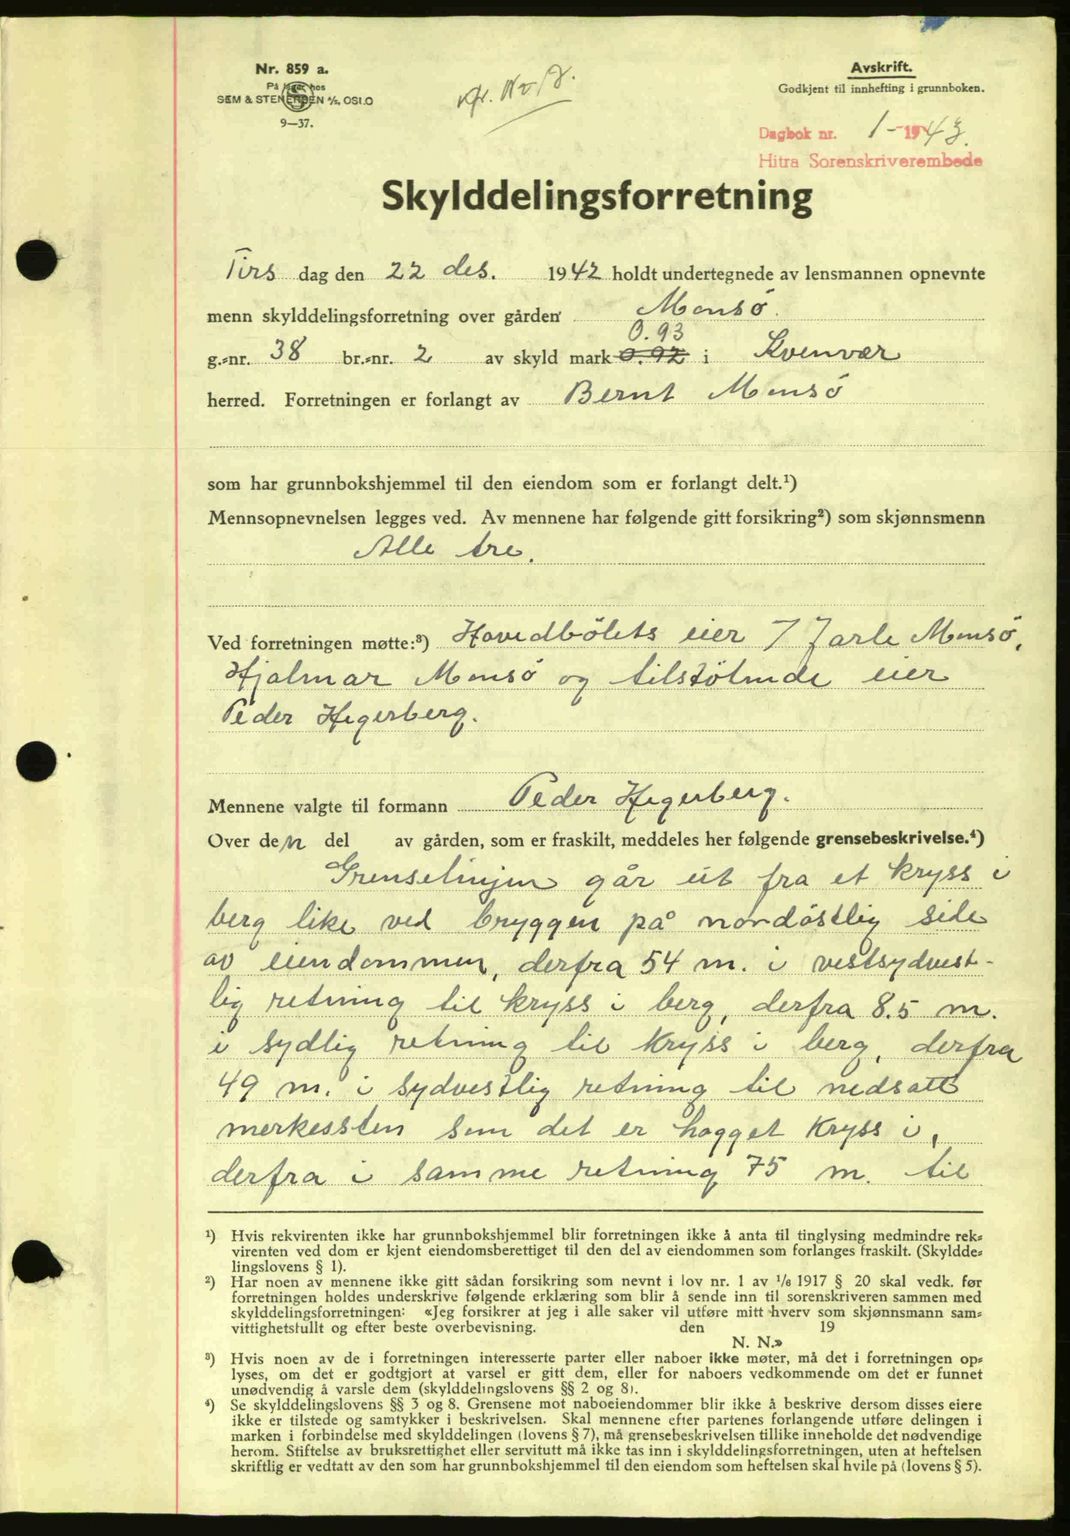 Nr. 859 a.
På lager hos
SEM & STENERSEN A/S, OSLO
9—37.
Avskrift.
Godkjent til innhefting i grunnboken.
Dagbok nr. 1 - 1943.
Hitra Sorenskriverembede
Skylddelingsforretning
Tirs dag den 22 des. 1942 holdt undertegnede av lensmannen opnevnte
menn skylddelingsforretning over gården Monsö.
0.93
g.=nr. 38 br.=nr. 2 av skyld mark 0.92 i Kvenvær
herred. Forretningen er forlangt av Bernt Monsö
som har grunnbokshjemmel til den eiendom som er forlangt delt.¹)
Mennsopnevnelsen legges ved. Av mennene har følgende gitt forsikring²) som skjønnsmenn
Alle tre.
Ved forretningen møtte:³) Hovedbölets eier Jarle Monsö,
Hjalmar Monsö og tilstötende eier
Peder Hegerberg.
Mennene valgte til formann Peder Hegerberg.
Over den del av gården, som er fraskilt, meddeles her følgende grensebeskrivelse.⁴)
Grenselinjen går ut fra et kryss i
berg like ved bryggen på nordöstlig side
av eiendommen, derfra 54 m. i vestsydvest-
lig retning til kryss i berg, derfra 8.5 m.
i sydlig retning til kryss i berg, derfra
49 m. i sydvestlig retning til nedsatt
merkessten som det er hogget kryss i,
derfra i samme retning 75 m. til
¹) Hvis rekvirenten ikke har grunnbokshjemmel blir forretningen ikke å anta til tinglysing medmindre rek=
virenten ved dom er kjent eiendomsberettiget til den del av eiendommen som forlanges fraskilt. (Skyldde=
lingslovens § 1).
²) Har noen av mennene ikke gitt sådan forsikring som nevnt i lov nr. 1 av 1/6 1917 § 20 skal vedk. før
forretningen holdes underskrive følgende erklæring som blir å sende inn til sorenskriveren sammen med
skylddelingsforretningen: «Jeg forsikrer at jeg i alle saker vil utføre mitt hverv som skjønnsmann sam=
vittighetsfullt og efter beste overbevisning. den 19
N. N.»
³) Hvis noen av de i forretningen interesserte parter eller naboer ikke møter, må det i forretningen op=
lyses, om det er godtgjort at varsel er gitt dem, eller for naboers vedkommende om det er funnet
unødvendig å varsle dem (skylddelingslovens §§ 2 og 8).
⁴) Se skylddelingslovens §§ 3 og 8. Grensene mot naboeiendommer blir ikke å beskrive dersom disses eiere
ikke er tilstede og samtykker i beskrivelsen. Skal mennene efter partenes forlangende utføre delingen i
marken i forbindelse med skylddelingen (lovens § 7), må grensebeskrivelsen tillike inneholde det nødvendige
herom. Stiftelse av bruksrettighet eller servitutt må ikke tas inn i skylddelingsforretningen, uten at heftelsen
skriftlig er vedtatt av den som har grunnbokshjemmel til den eiendom som heftelsen skal hvile på (lovens § 5).